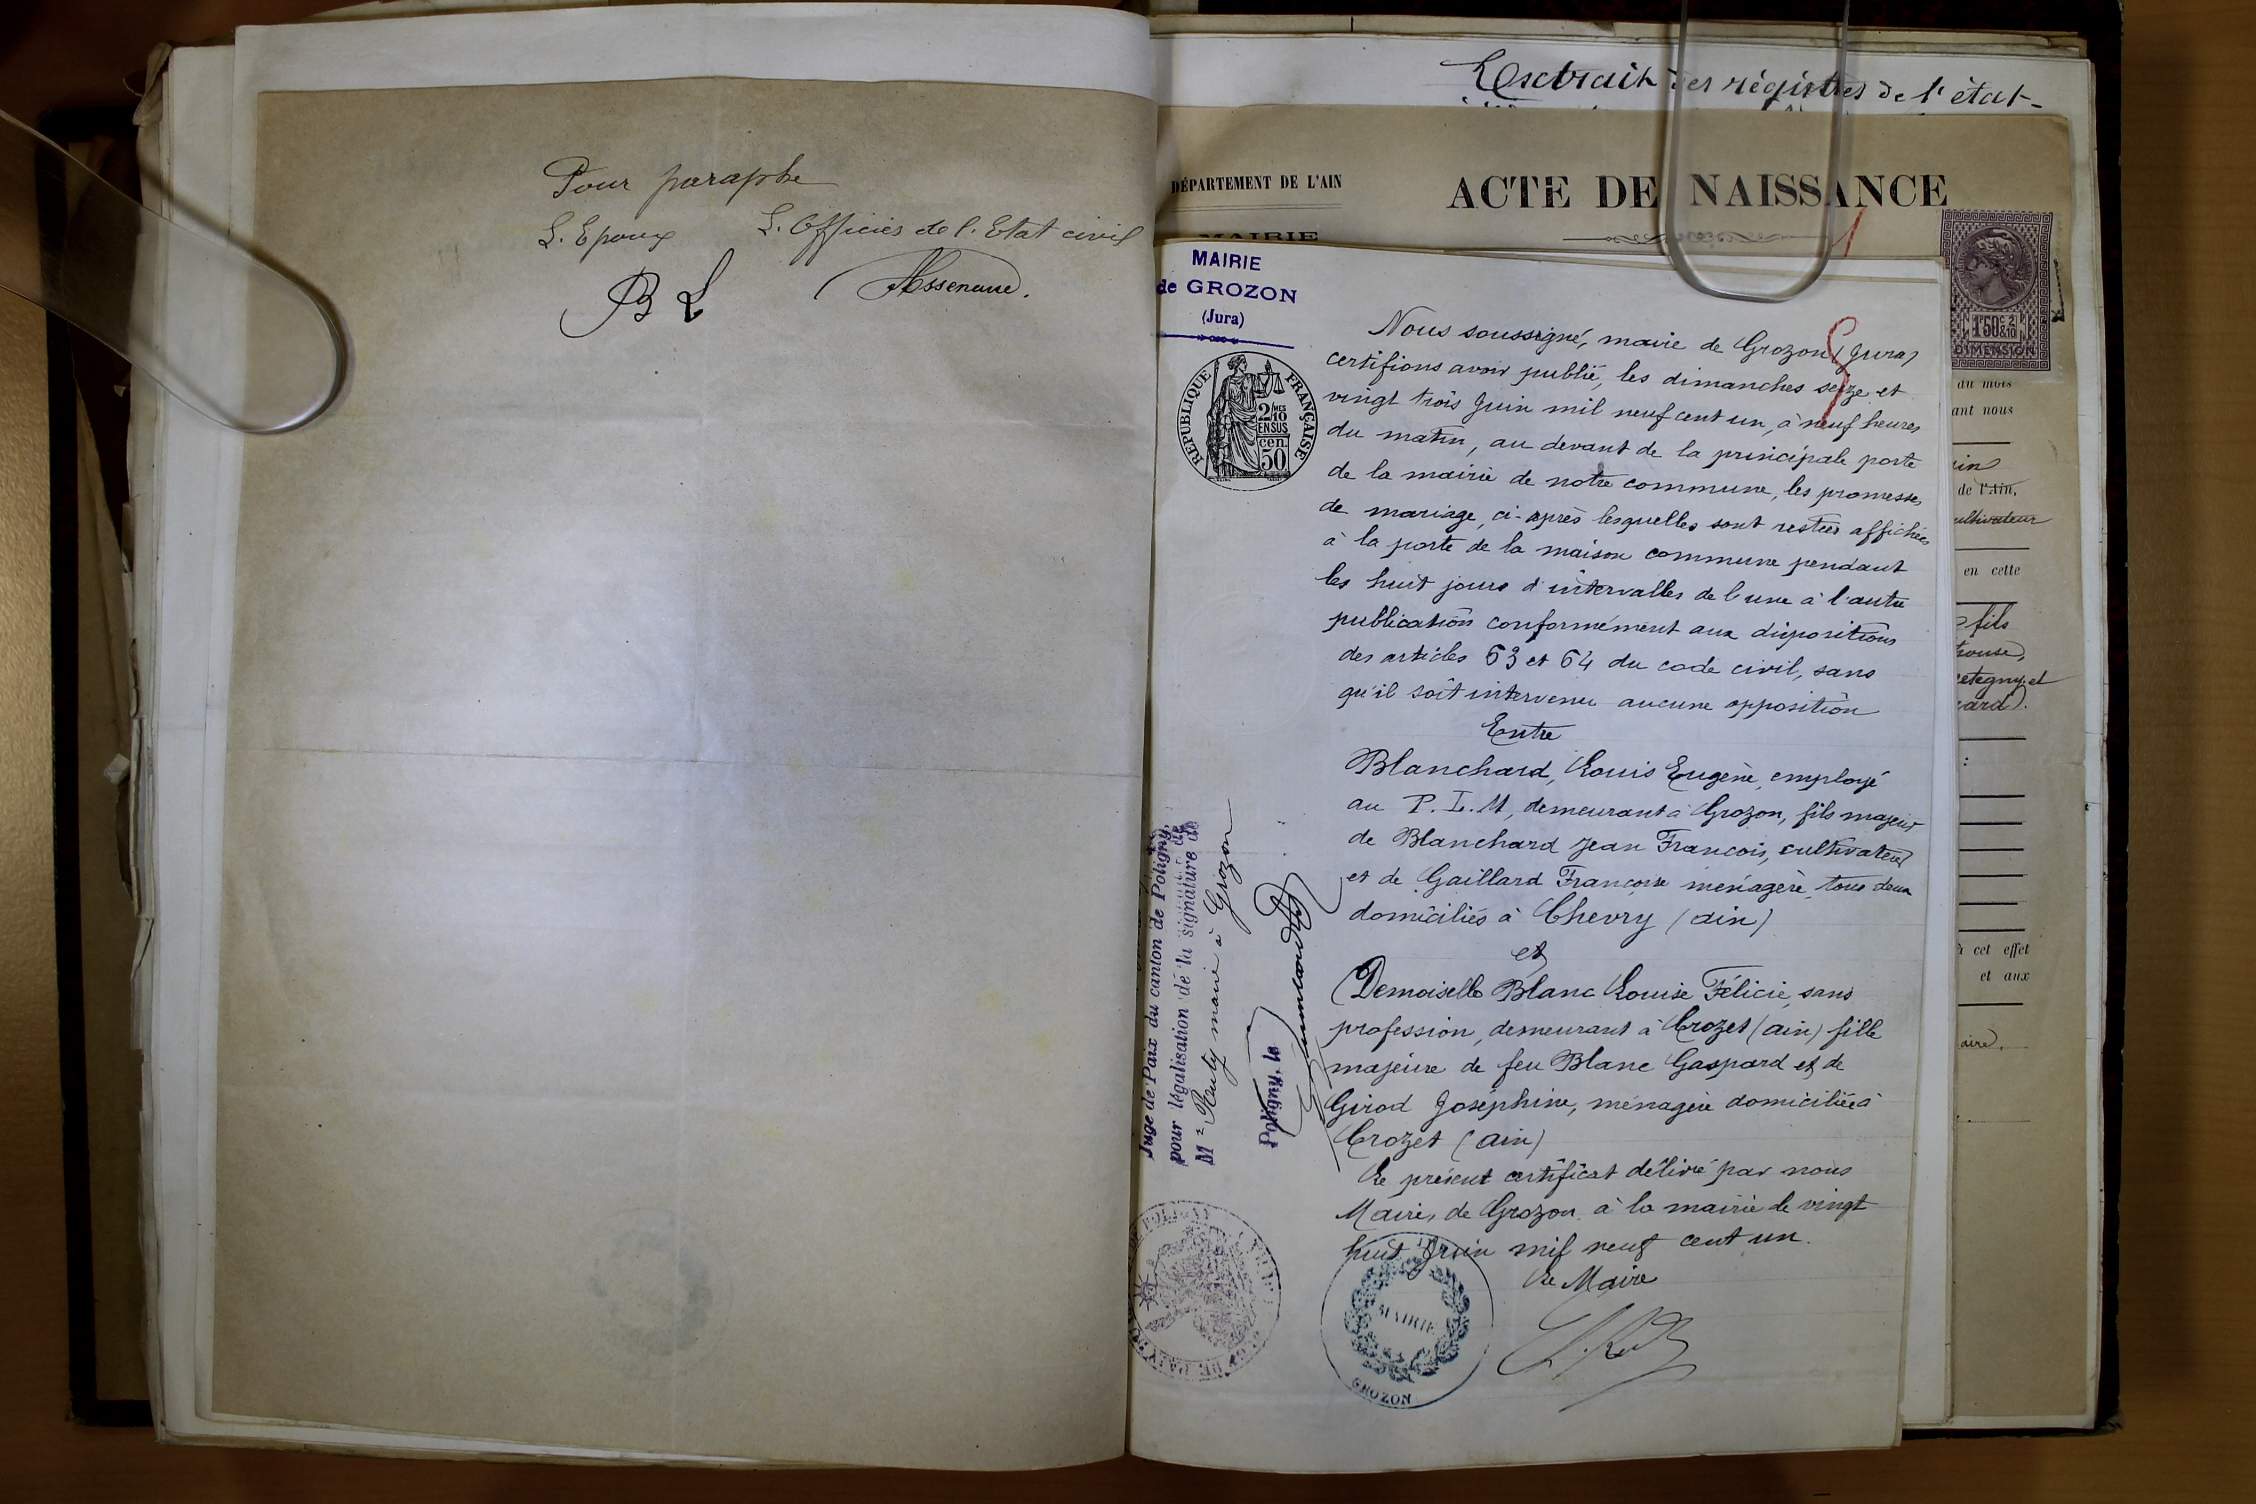 Pour paraphe
L. Epoux L. Officier de l. Etat civil
B L
Extrait des régistres de l'état-
DÉPARTEMENT DE L'AIN
ACTE DE NAISSANCE
MAIRIE
1F50 & 2/10
DIMENSION
du mois
ant nous
de l'Ain,
ultivateur
en cette
fils
à cet effet
et aux
aire.
MAIRIE
de GROZON
(Jura)
RÉPUBLIQUE FRANÇAISE
2/10 MES
EN SUS
50 cen.
Nous soussigné, maire de Grozon (Jura)
certifions avoir publié, les dimanches seize et
vingt trois Juin mil neuf cent un, à neuf heures
du matin, au devant de la principale porte
de la mairie de notre commune, les promesses
de mariage, ci-après lesquelles sont restées affichées
à la porte de la maison commune pendant
les huit jours d'intervalles de l'une à l'autre
publication conformément aux dispositions
des articles 63 et 64 du code civil, sans
qu'il soit intervenu aucune opposition
Entre
Blanchard, Louis Eugène, employé
au P. L. M, demeurant à Grozon, fils majeur
de Blanchard Jean François, cultivateur
et de Gaillard Françoise ménagère, tous deux
domiciliés à Chevry (ain)
et
Demoiselle Blanc Louise Félicie, sans
profession, demeurant à Crozet (ain) fille
majeure de feu Blanc Gaspard et de
Girod Joséphine, ménagère domiciliée à
Crozet (ain)
Le présent certificat délivré par nous
Maire, de Grozon à la mairie le vingt
huit Juin mil neuf cent un.
Le Maire
MAIRIE
GROZON
Juge de Paix du canton de Poligny,
pour légalisation de la signature de
M. Renty maire à Grozon
Poligny, le